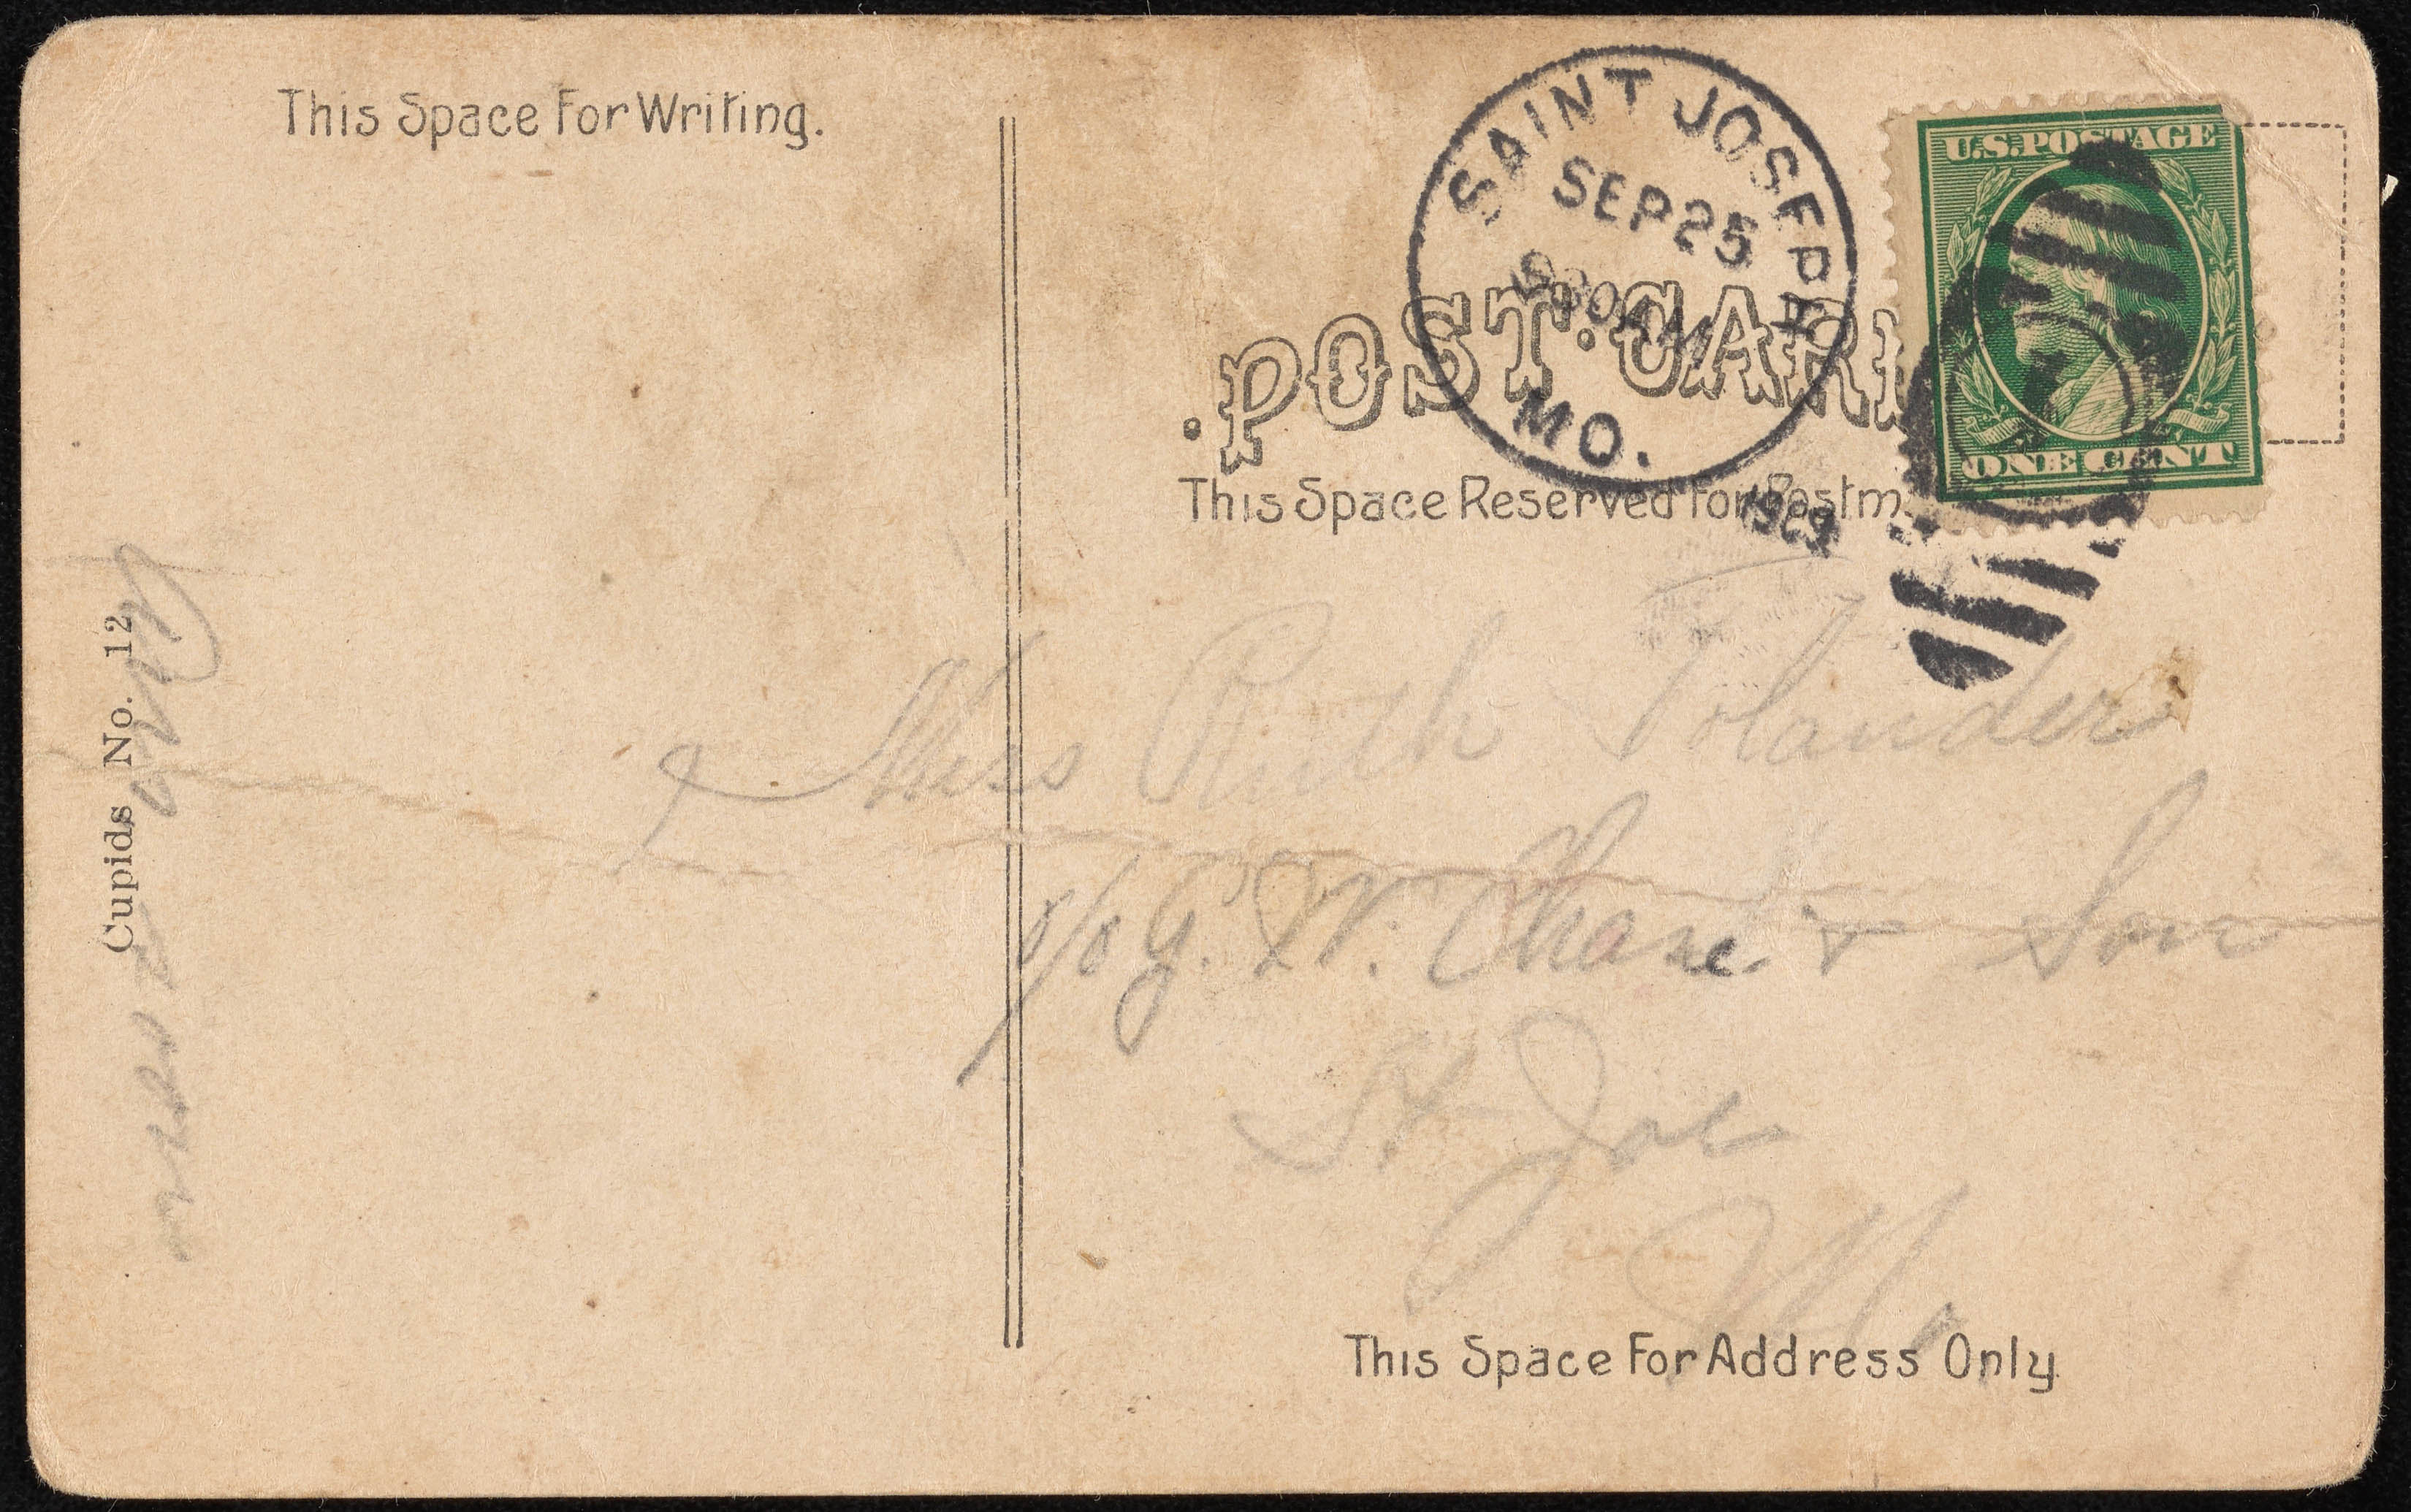 This Space For Writing.
SAINT JOSEPH
SEP 25
930 AM
MO.
1909
U.S. POSTAGE
ONE CENT
·POST·CAR
This Space Reserved For Postm
Miss Ruth Tolander
c/o G. W. Chase & Son
St Joe
Mo
This Space For Address Only
Cupids No. 12